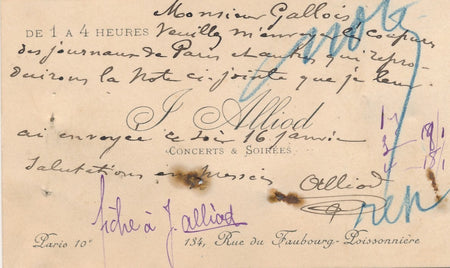 Monsieur Gallois
DE 1 A 4 HEURES Veuillez m'envoyer les coupures
des journaux de Paris et autres qui repro-
duirons la Note ci-jointe que je leur
J. Alliod
ai envoyée ce soir 16 janvier
CONCERTS & SOIRÉES
Salutations empressées
Alliod
note
rep
fiche à J. alliod
Paris 10e 134, Rue du Faubourg-Poissonnière